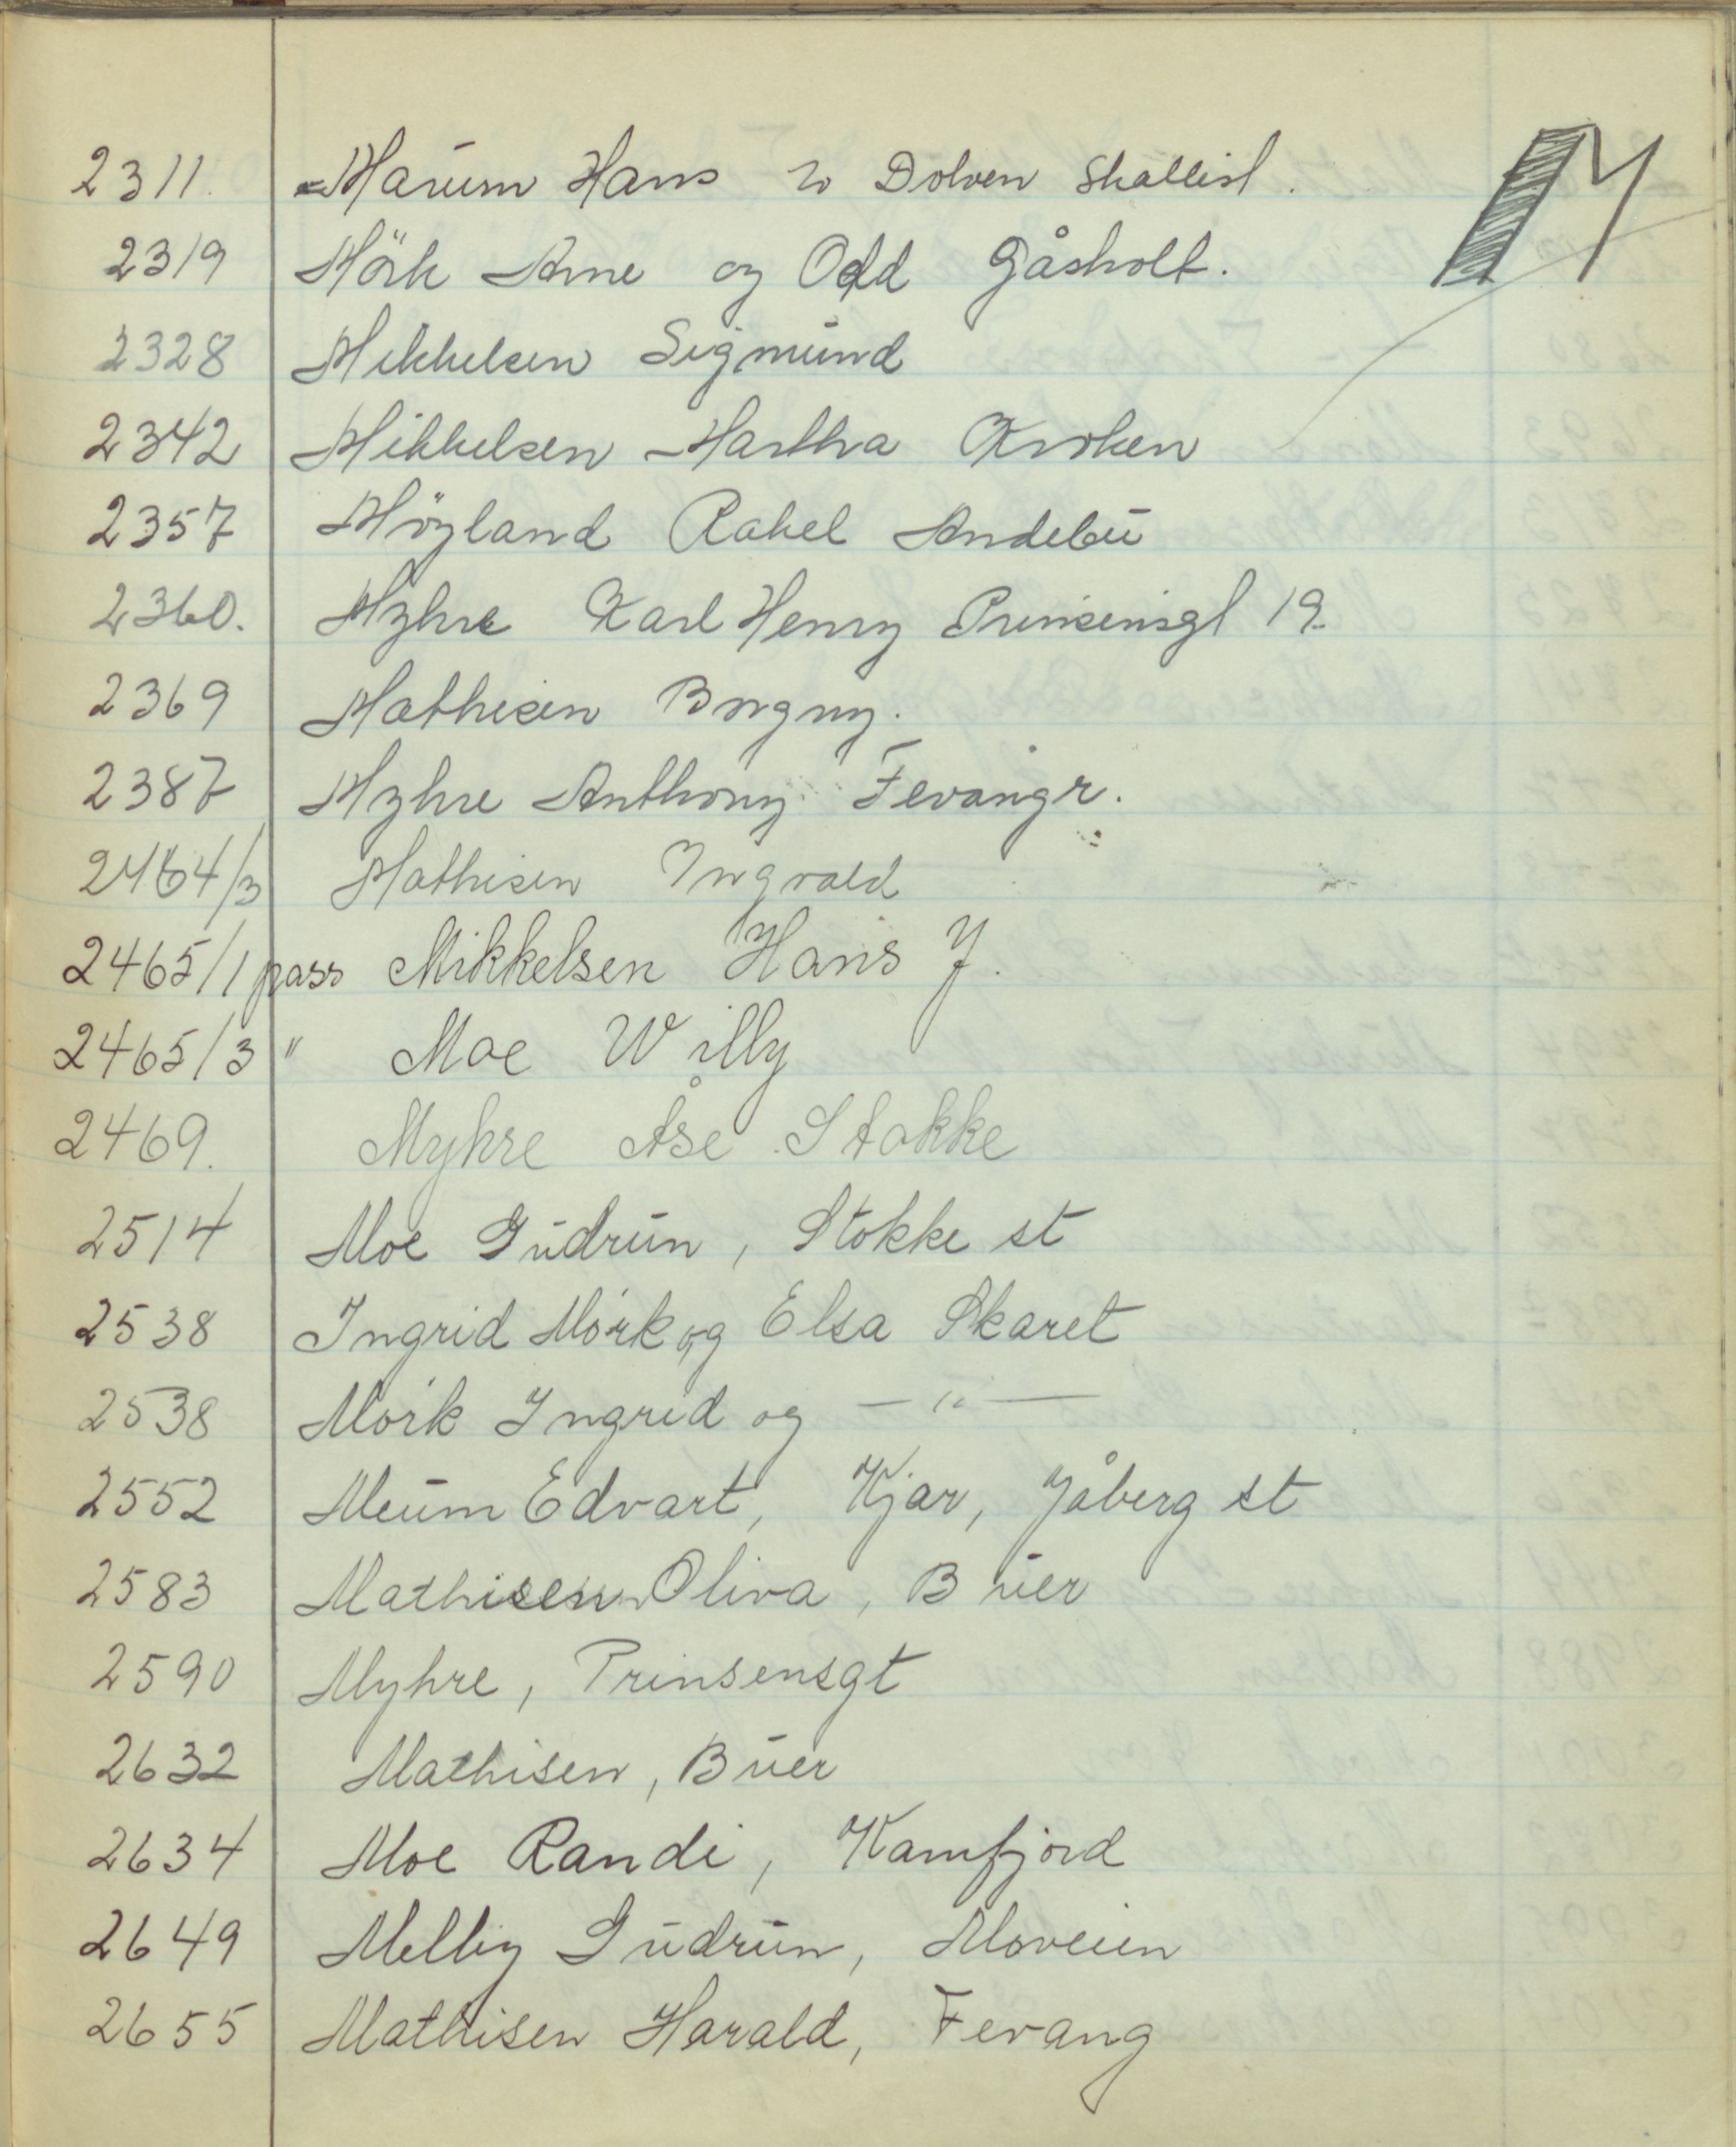 M
2311. Marum Hans Dolven Skallist.
2319 Mörk Arne og Odd Gåsholt.
2328 Mikkelsen Sigmund
2342 Mikkelsen Martha Kroken
2357 Möyland Rakel Andebu
2360. Myhre Karl Henry Prinsensgt 19.
2369 Mathisen Borgny.
2387 Myhre Anthony Fevangr.
2464/3 Mathisen Ingvald
2465/1 pass Mikkelsen Hans J.
2465/3 " Moe Willy
2469. Myhre Åse Stokke
2514 Moe Gudrun, Stokke st
2538 Ingrid Mörk og Elsa Skaret
2538 Mörk Ingrid og — " —
2552 Meum Edvart, Kjær, Jåberg st
2583 Mathisen Oliva, Buer
2590 Myhre, Prinsensgt
2632 Mathisen, Buer
2634 Moe Randi, Kamfjord
2649 Melby Gudrun, Moveien
2655 Mathisen Harald, Fevang